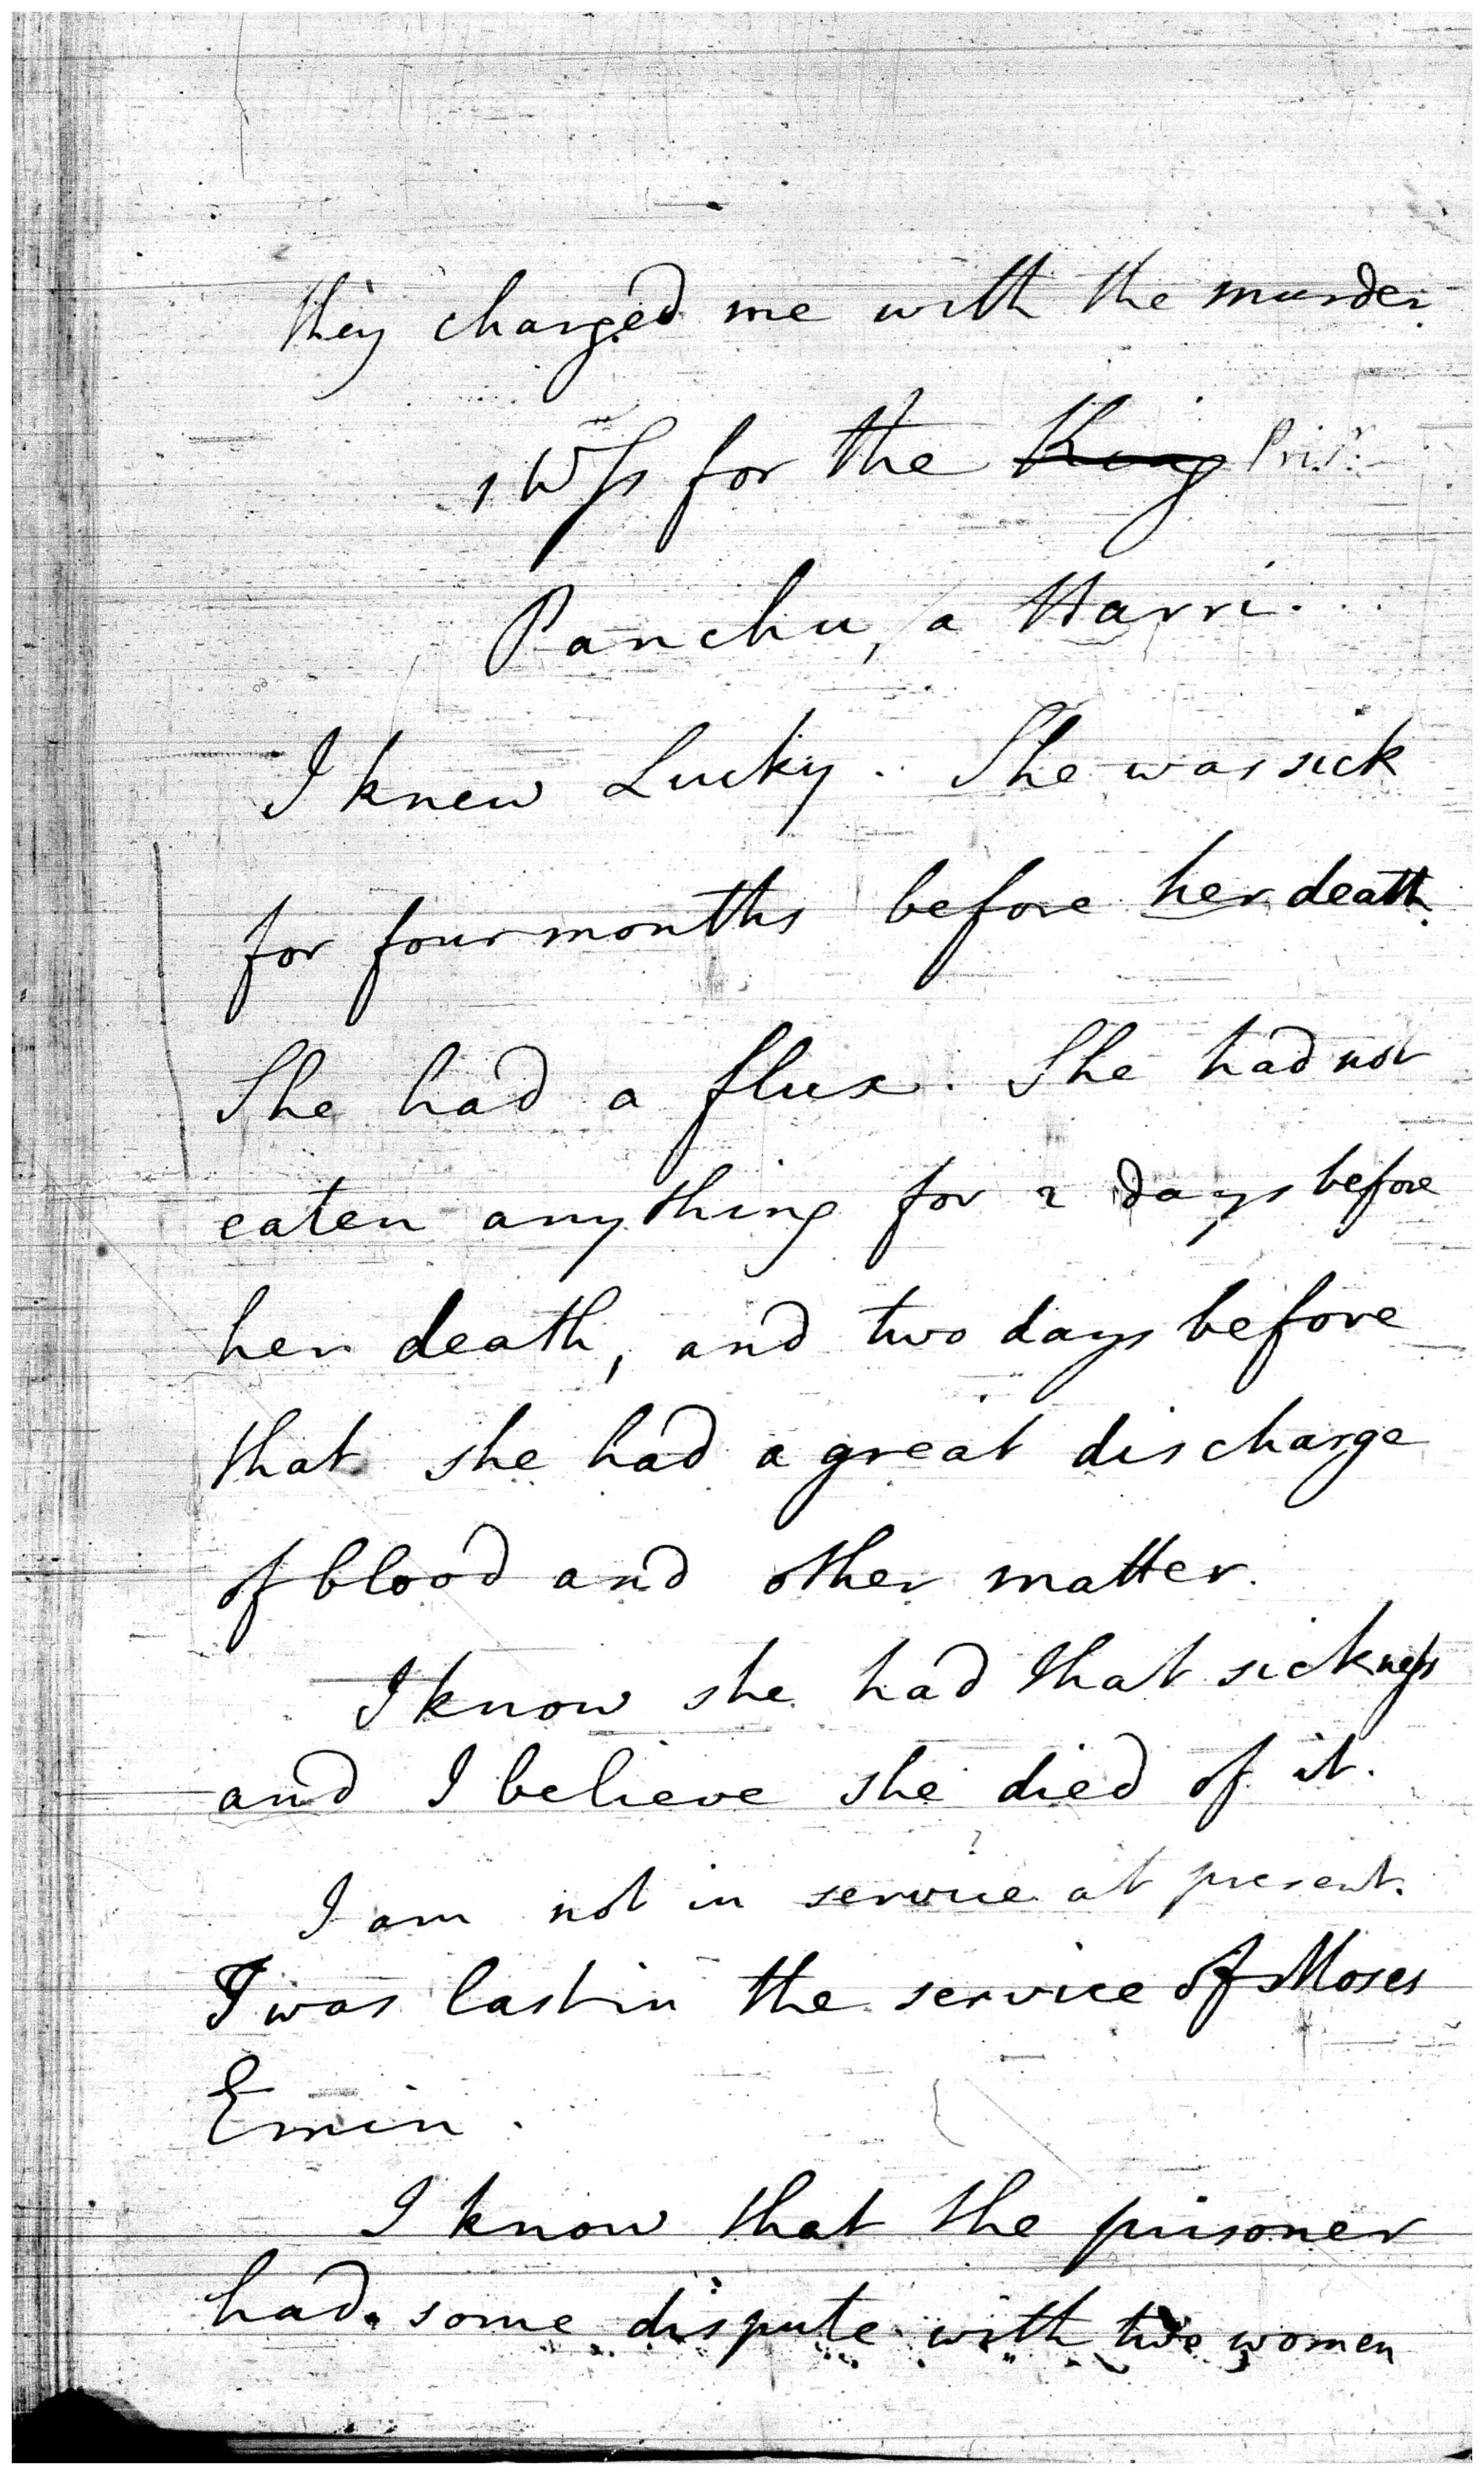 they charged me with the murder.
1 Wss for the King Prisr.
Panchu, a Harri.
I knew Lucky. She was sick
for four months before her death.
She had a flux. She had not
eaten anything for 2 days before
her death, and two days before
that she had a great discharge
of blood and other matter.
I know she had that sickness
and I believe she died of it.
I am not in service at present.
I was last in the service of Moses
Emin.
I know that the prisoner
had some dispute with two women